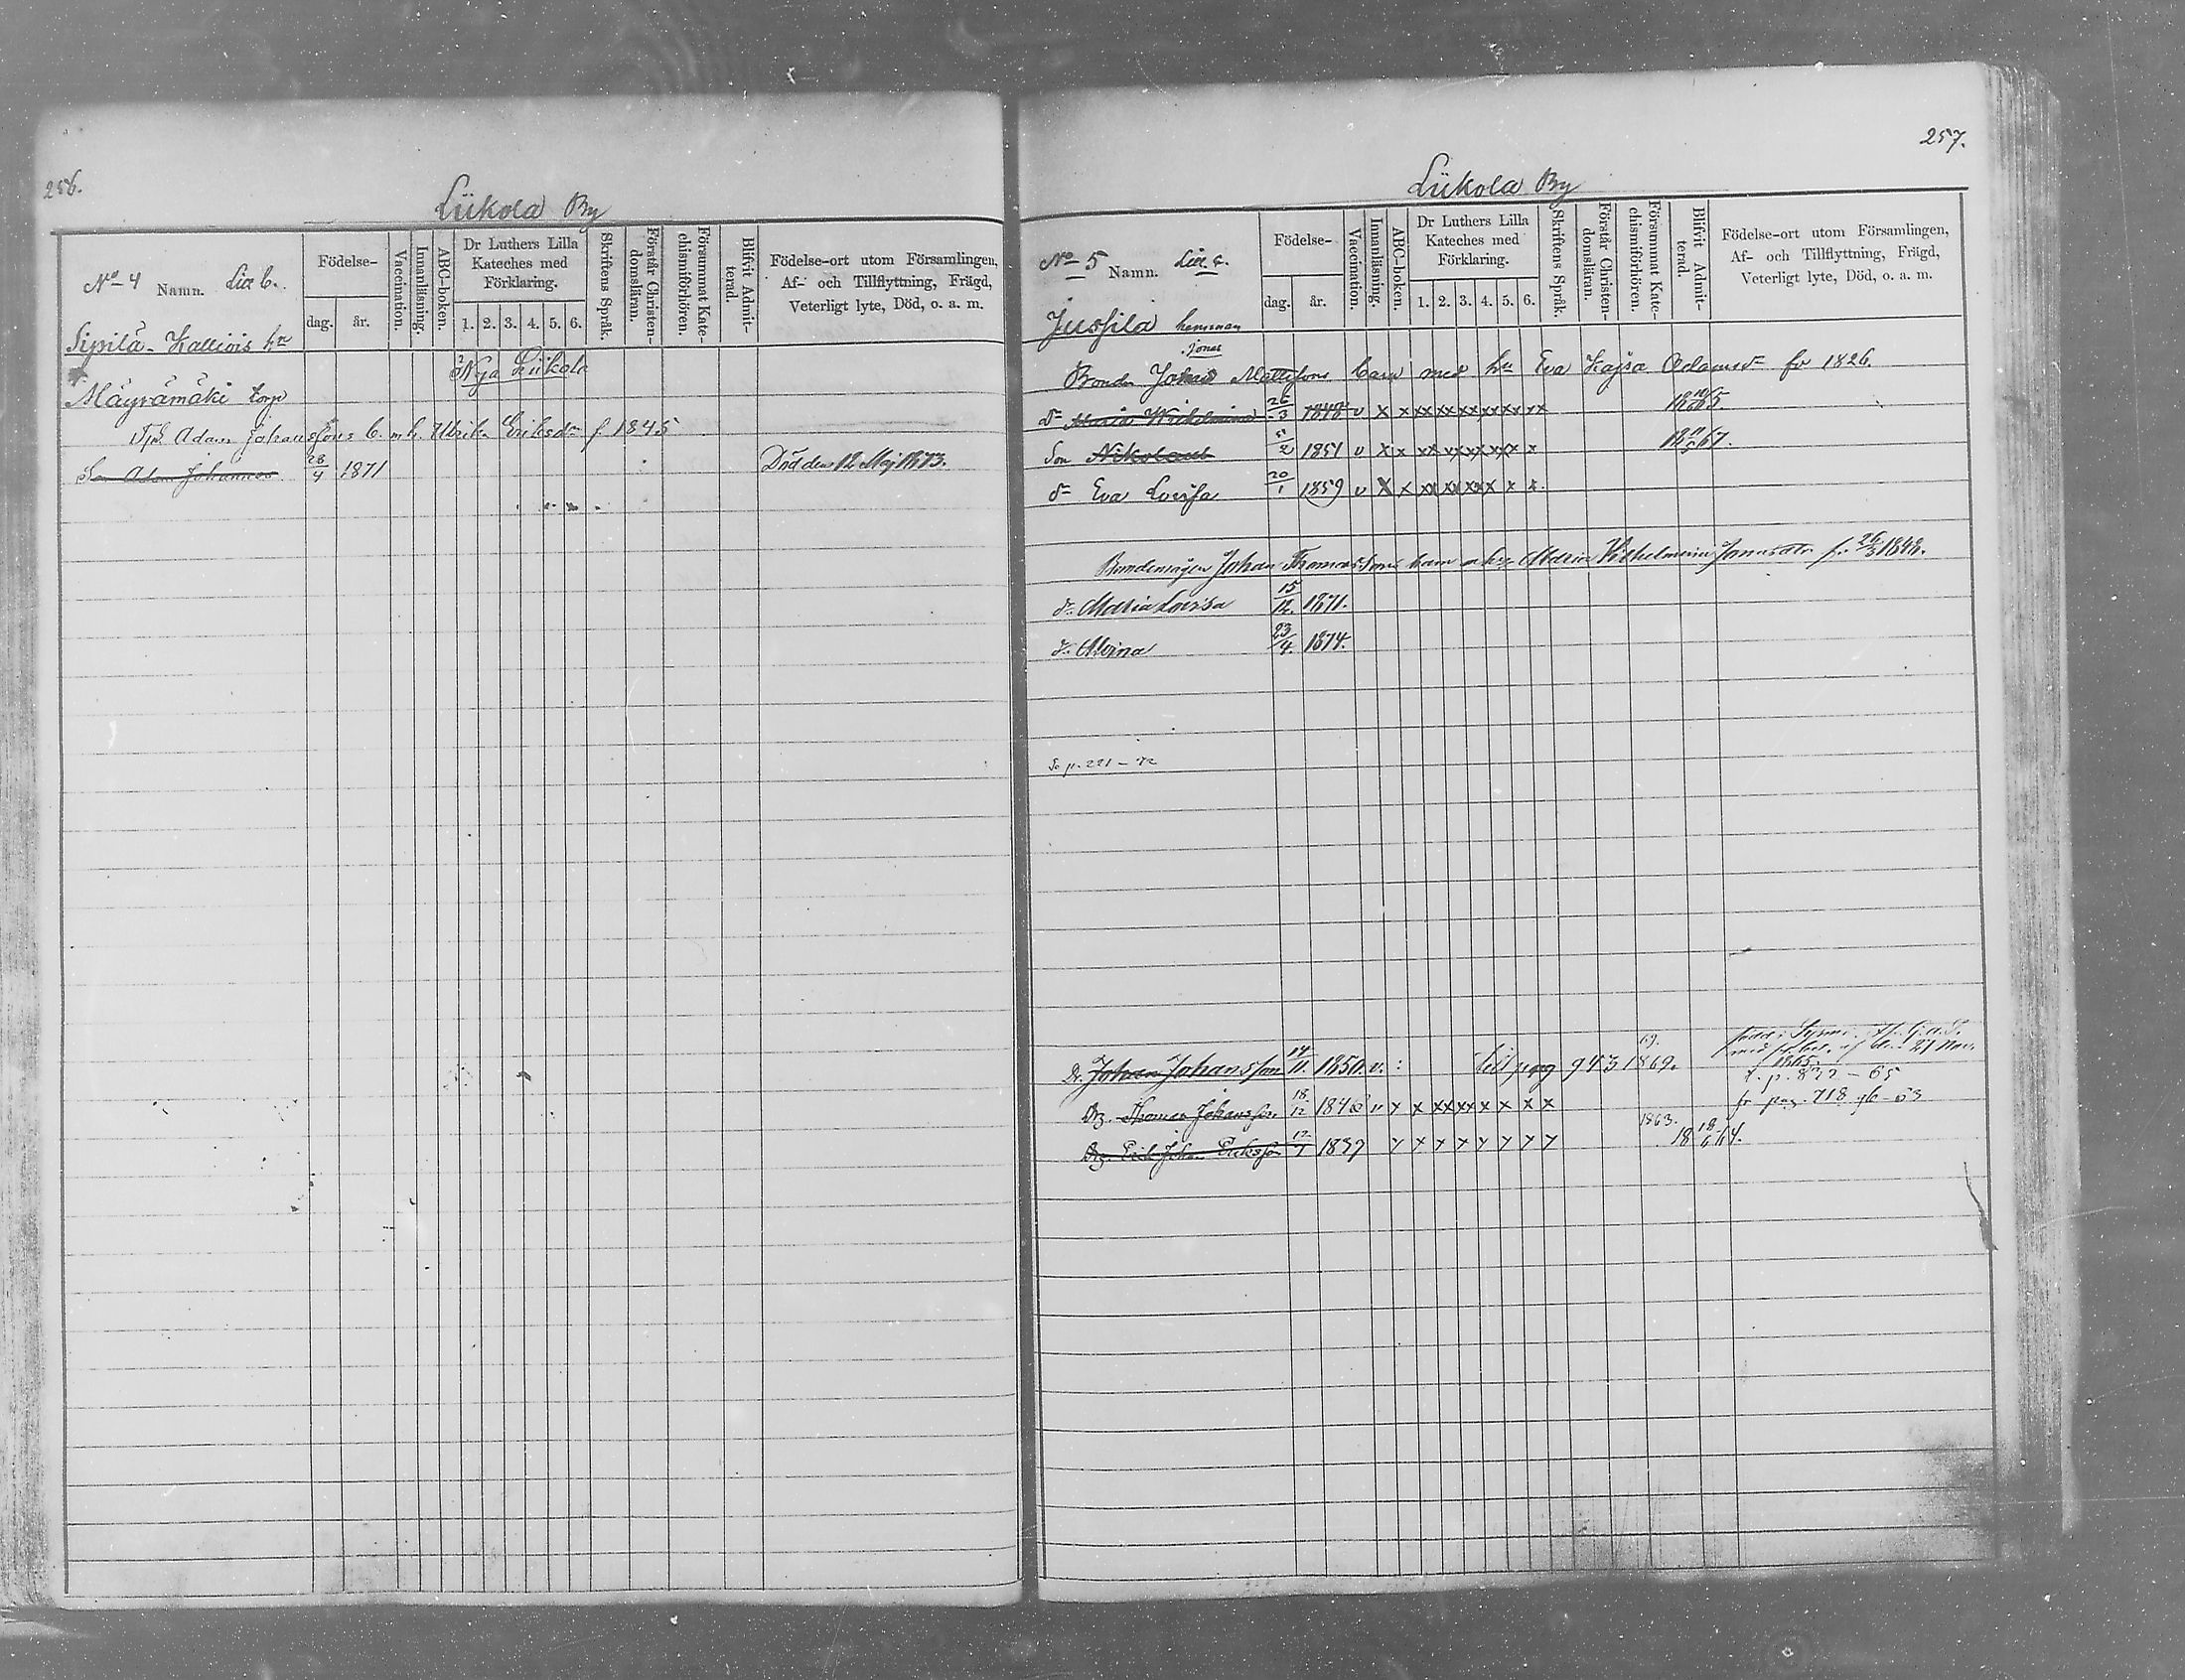 256.
Liikola By
No 4 Namn. Litt b.
Födelse-
dag. år.
Vaccination.
Innanläsning.
ABC-boken.
Dr Luthers Lilla Kateches med Förklaring.
1. 2. 3. 4. 5. 6.
Skriftens Språk.
Förstår Christendomsläran.
Försummat Katechismiförhören.
Blifvit Admitterad.
Födelse-ort utom Församlingen, Af- och Tillflyttning, Frägd, Veterligt lyte, Död, o. a. m.
Sipilä-Kalliois hn
Nya Liikola
Mäyrämäki torp
Adam Johanssons b. m h. Ulrika Eriksdr f 1845
Son Adam Johannes 28/4 1871 Död den 12 Maj 1873.
257.
Liikola By
No 5 Namn. Litt a.
Födelse-
dag. år.
Vaccination.
Innanläsning.
ABC-boken.
Dr Luthers Lilla Kateches med Förklaring.
1. 2. 3. 4. 5. 6.
Skriftens Språk.
Förstår Christendomsläran.
Försummat Katechismiförhören.
Blifvit Admitterad.
Födelse-ort utom Församlingen, Af- och Tillflyttning, Frägd, Veterligt lyte, Död, o. a. m.
Jussila hemman
Jonas
Bonden Mattssons barn med hu Eva Kajsa Adamsdr för 1826.
dr Maria Wilhelmina 26/3 1848 v x x xx xx xx xx xx xx
Son Nikolaus 2 1851 v x x xx x xx xx xx x
dr Eva Lovisa 20/1 1859 v x x xx xx xx x x x
Bondemågen Johan Thomassons barn m h. Maria Vilhelmina Jonasdr f. 26/3 1848.
dr Maria Lovisa 15/12. 1871.
dr Alvina 23/4. 1874.
Se p. 221 – 72
Dr. Johan Johansson 14/11. 1850. v. : till pag 943 1869.
t. p. 832 – 65
Drg. Thomas Johansson 18/12 v x x xx xx x x x x fr pag. 718 – 63
1863.
Drg. Erik Johan Eriksson 1837 x x x x x x x x 18 18/6 64.